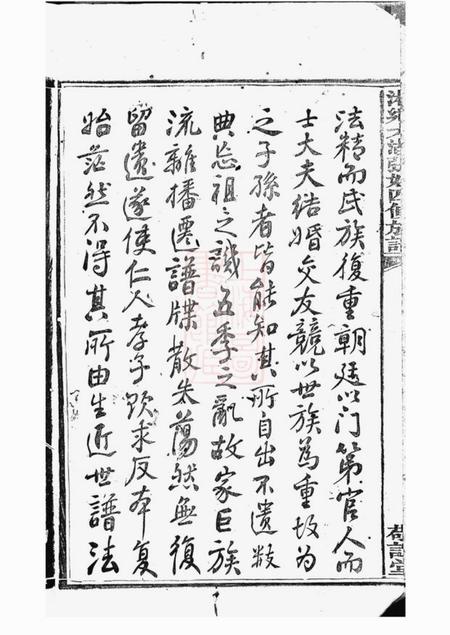 法精而氏族復重朝廷以门第官人而
士大夫结婚交友競以世族為重故为
之子孫者皆能知其所自出不遺數
典忘祖之譏五季之亂故家巨族
流離播遷譜牒散失蕩然無復
留遺遂使仁人孝子欲求反本復
始茫然不得其所由生近世譜法
四修族譜